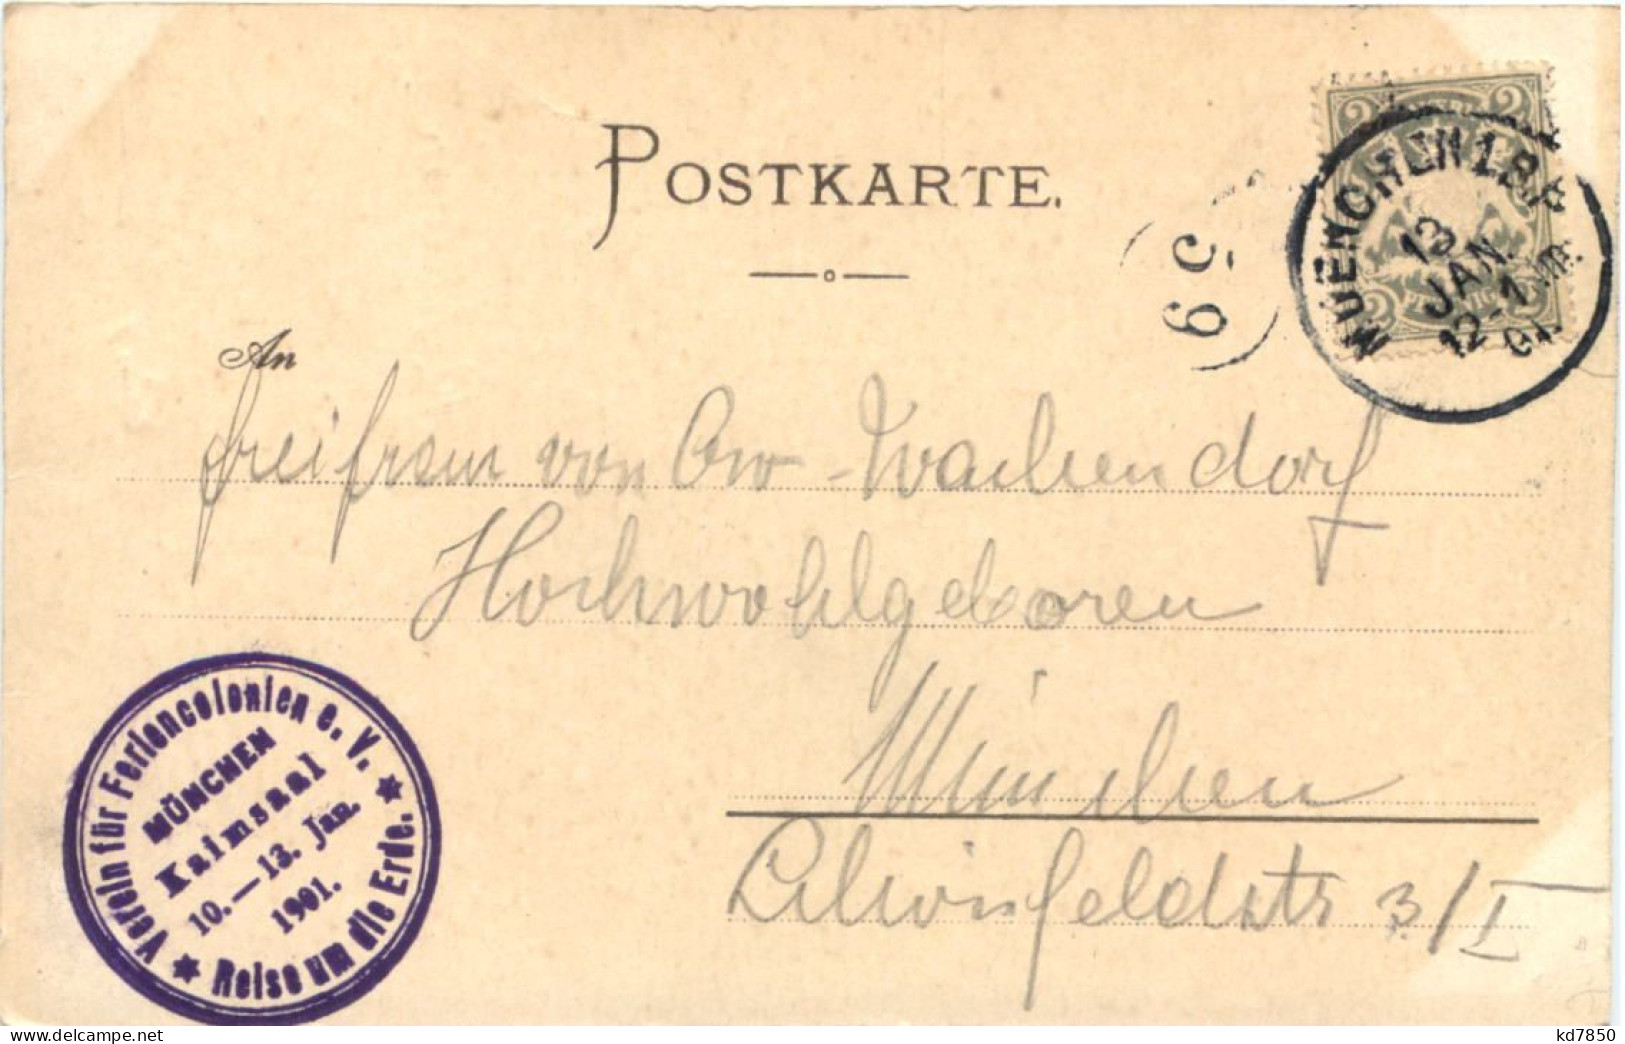 POSTKARTE.
2 2
MUENCHEN 1. B.P.
13
JAN.
12-1 Nm.
01.
59
An
Freifrau von Ow-Wachendorf
Hochwohlgeboren
München
3/I
Verein für Feriencolonien e. V.
MÜNCHEN
Kaimsaal
10.—13. Jan.
1901.
Reise um die Erde.
kd7850